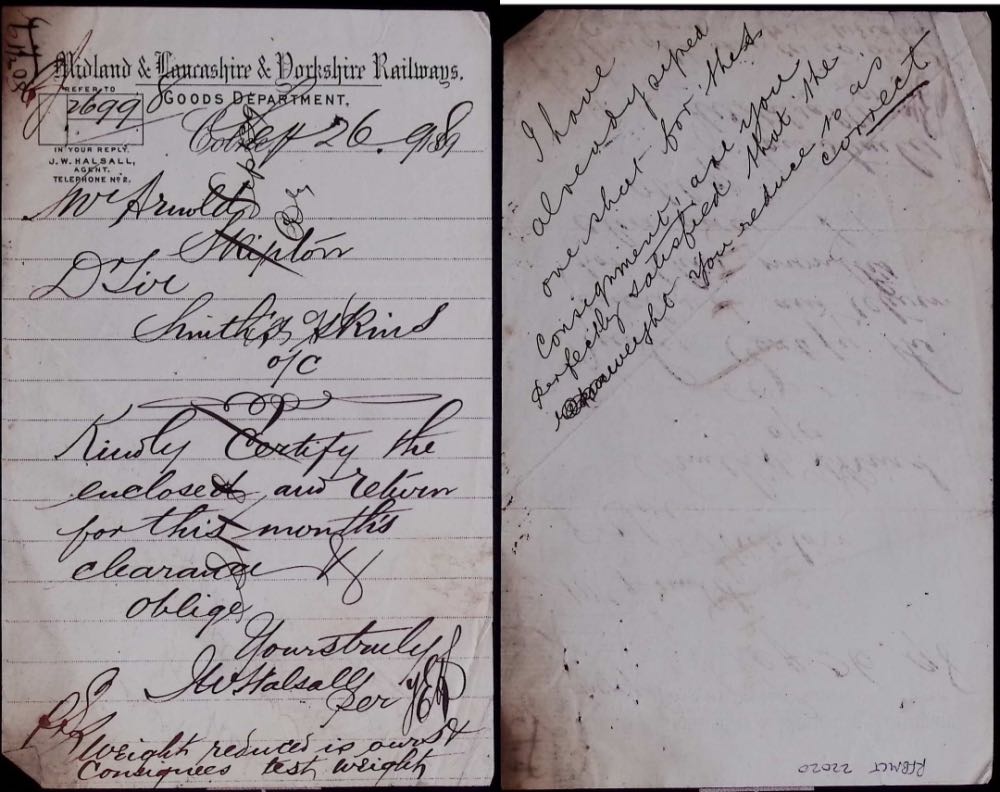 Midland & Lancashire & Yorkshire Railways.
GOODS DEPARTMENT,
REFER TO
2699
IN YOUR REPLY.
J. W. HALSALL,
AGENT.
TELEPHONE Nº 2.
Colne 26. 98
Mr Arnold
Skipton
Dr Sir
Smith's Skins
o/c
Kindly Certify the
enclosed and return
for this month's
clearance &
oblige
Yours truly
JW Halsall
per
Weight reduced is ours &
Consignees test weight
I have
already siped
one sheet for this
Consignment, are you
perfectly satisfied that the
weight you reduce to is
correct
RFBMLT 22020